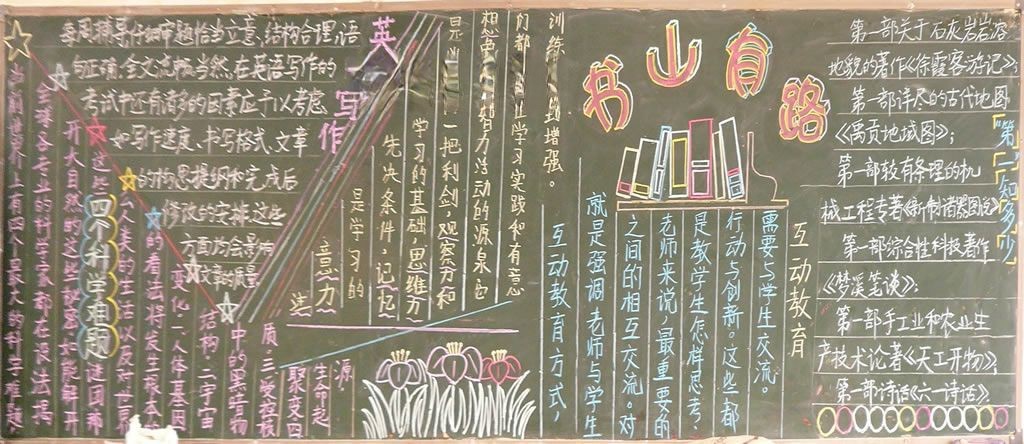 书山有路
英写作
每周辅导仔细审题恰当立意、结构合理、语
句正确、全文流畅当然、在英语写作的
考试中还有诸多的因素应予以考虑
如写作速度、书写格式、文章
的构思提纲和完成后
修改的安排、这些
方面均会影响
文章的质量
四个科学难题
目前世界上有四个最大的科学难题
全球各专业的科学家都在设法揭
开大自然的这些秘密
这些
谜团
人类的生活以及对世界
的看法将发生根本的
变化一人体基因
结构二宇宙
中的黑暗物
质、三受控核
聚变四
生命起
源
注
意力
是学习的
先决条件,记忆
学习的基础,思维
一把利剑,观察力和
想
力活动的源泉
都
让学习实践和有意
训练
到增强。
互动教育
需要与学生交流。
行动与创新。这些都
是教学生怎样思考?
老师来说,最重要的
之间的相互交流。对
就是强调老师与学生
互动教育方式,
第一部关于石灰岩岩溶
地貌的著作《徐霞客游记》;
第一部详尽的古代地图
《禹贡地域图》;
第一部较有条理的机
械工程专著《新制诸器图说》
第一部综合性科技著作
《梦溪笔谈》;
第一部手工业和农业生
产技术论著《天工开物》;
第一部诗话《六一诗话》。
“第一”知多少